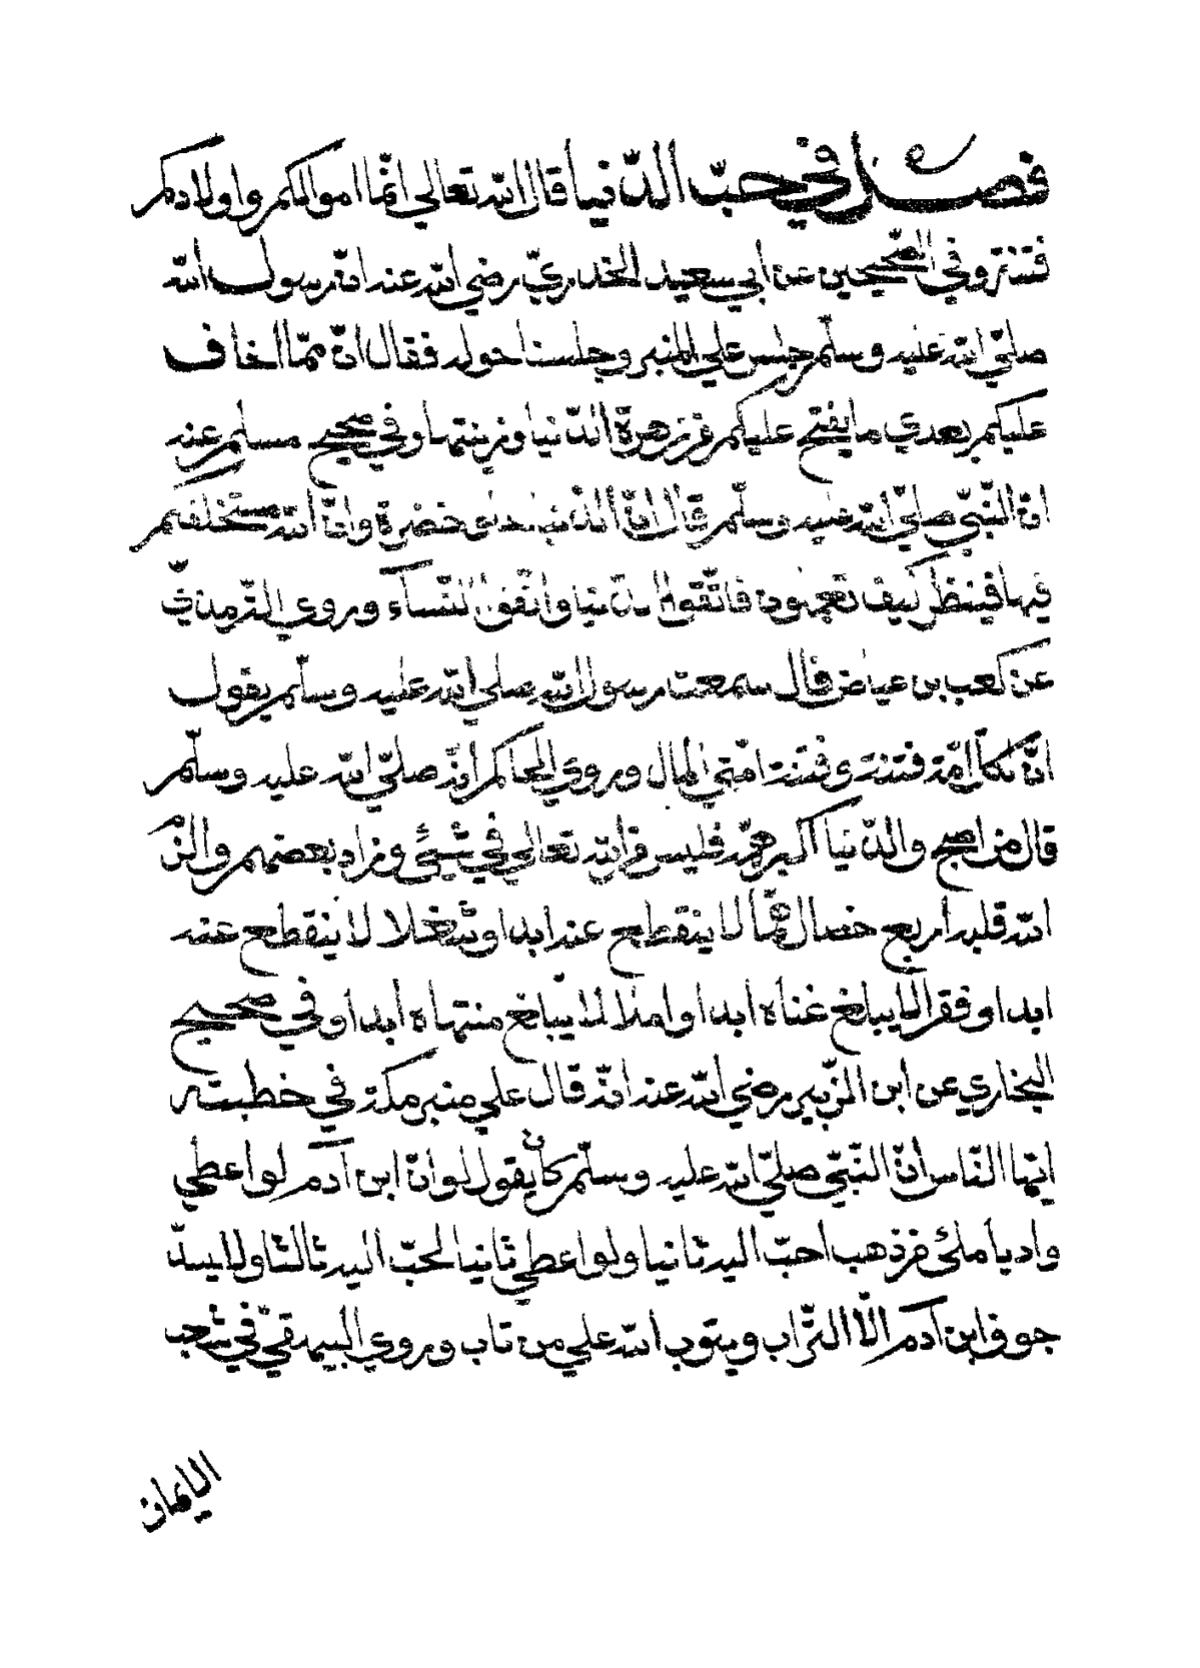 فصل في حبّ الدّنيا قال الله تعالي انّما اموالكم واولادكم
فتنة وفي الصّحيحين عن ابي سعيد الخدريّ رضي الله عنه انّ رسول الله
صلّي الله عليه وسلّم جلس علي المنبر وجلسنا حوله فقال انّ ممّا اخاف
عليكم بعدي ما يفتح عليكم من زهرة الدّنيا وزينتها وفي صحيح مسلم عنه
انّ النّبيّ صلّي الله عليه وسلّم قال انّ الدّنيا حلوة خضرة وانّ الله مستخلفكم
فيها فينظر كيف تعملون فاتّقوا الدّنيا واتّقوا النّسآء وروي التّرمذيّ
عن كعب بن عياض قال سمعت رسول الله صلي الله عليه وسلّم يقول
انّ لكلّ امّة فتنة وفتنة امّتي المال وروي الحاكم انّه صلّي الله عليه وسلّم
قال من اصبح والدّنيا اكبر همّه فليس من الله تعالي في شيئ وزاد بعضهم والزم
الله قلبه اربع خصال همّا لا ينقطع عنه ابدا وشغلا لا ينقطع عنه
ابدا وفقرا لا يبلغ غناه ابدا واملا لا يبلغ منتهاه ابدا وفي صحيح
البخاري عن ابن الزّبير رضي الله عنه انّه قال علي منبر مكّة في خطبته
ايّها النّاس انّ النّبيّ صلّي الله عليه وسلّم كان يقول لو انّ ابن آدم لو اعطي
واديا ملئ من ذهب احبّ اليه ثانيا ولو اعطي ثانيا احبّ اليه ثالثا ولا يسدّ
جوف ابن آدم الّا التّراب ويتوب الله علي من تاب وروي البيهقيّ في شعب
الايمان